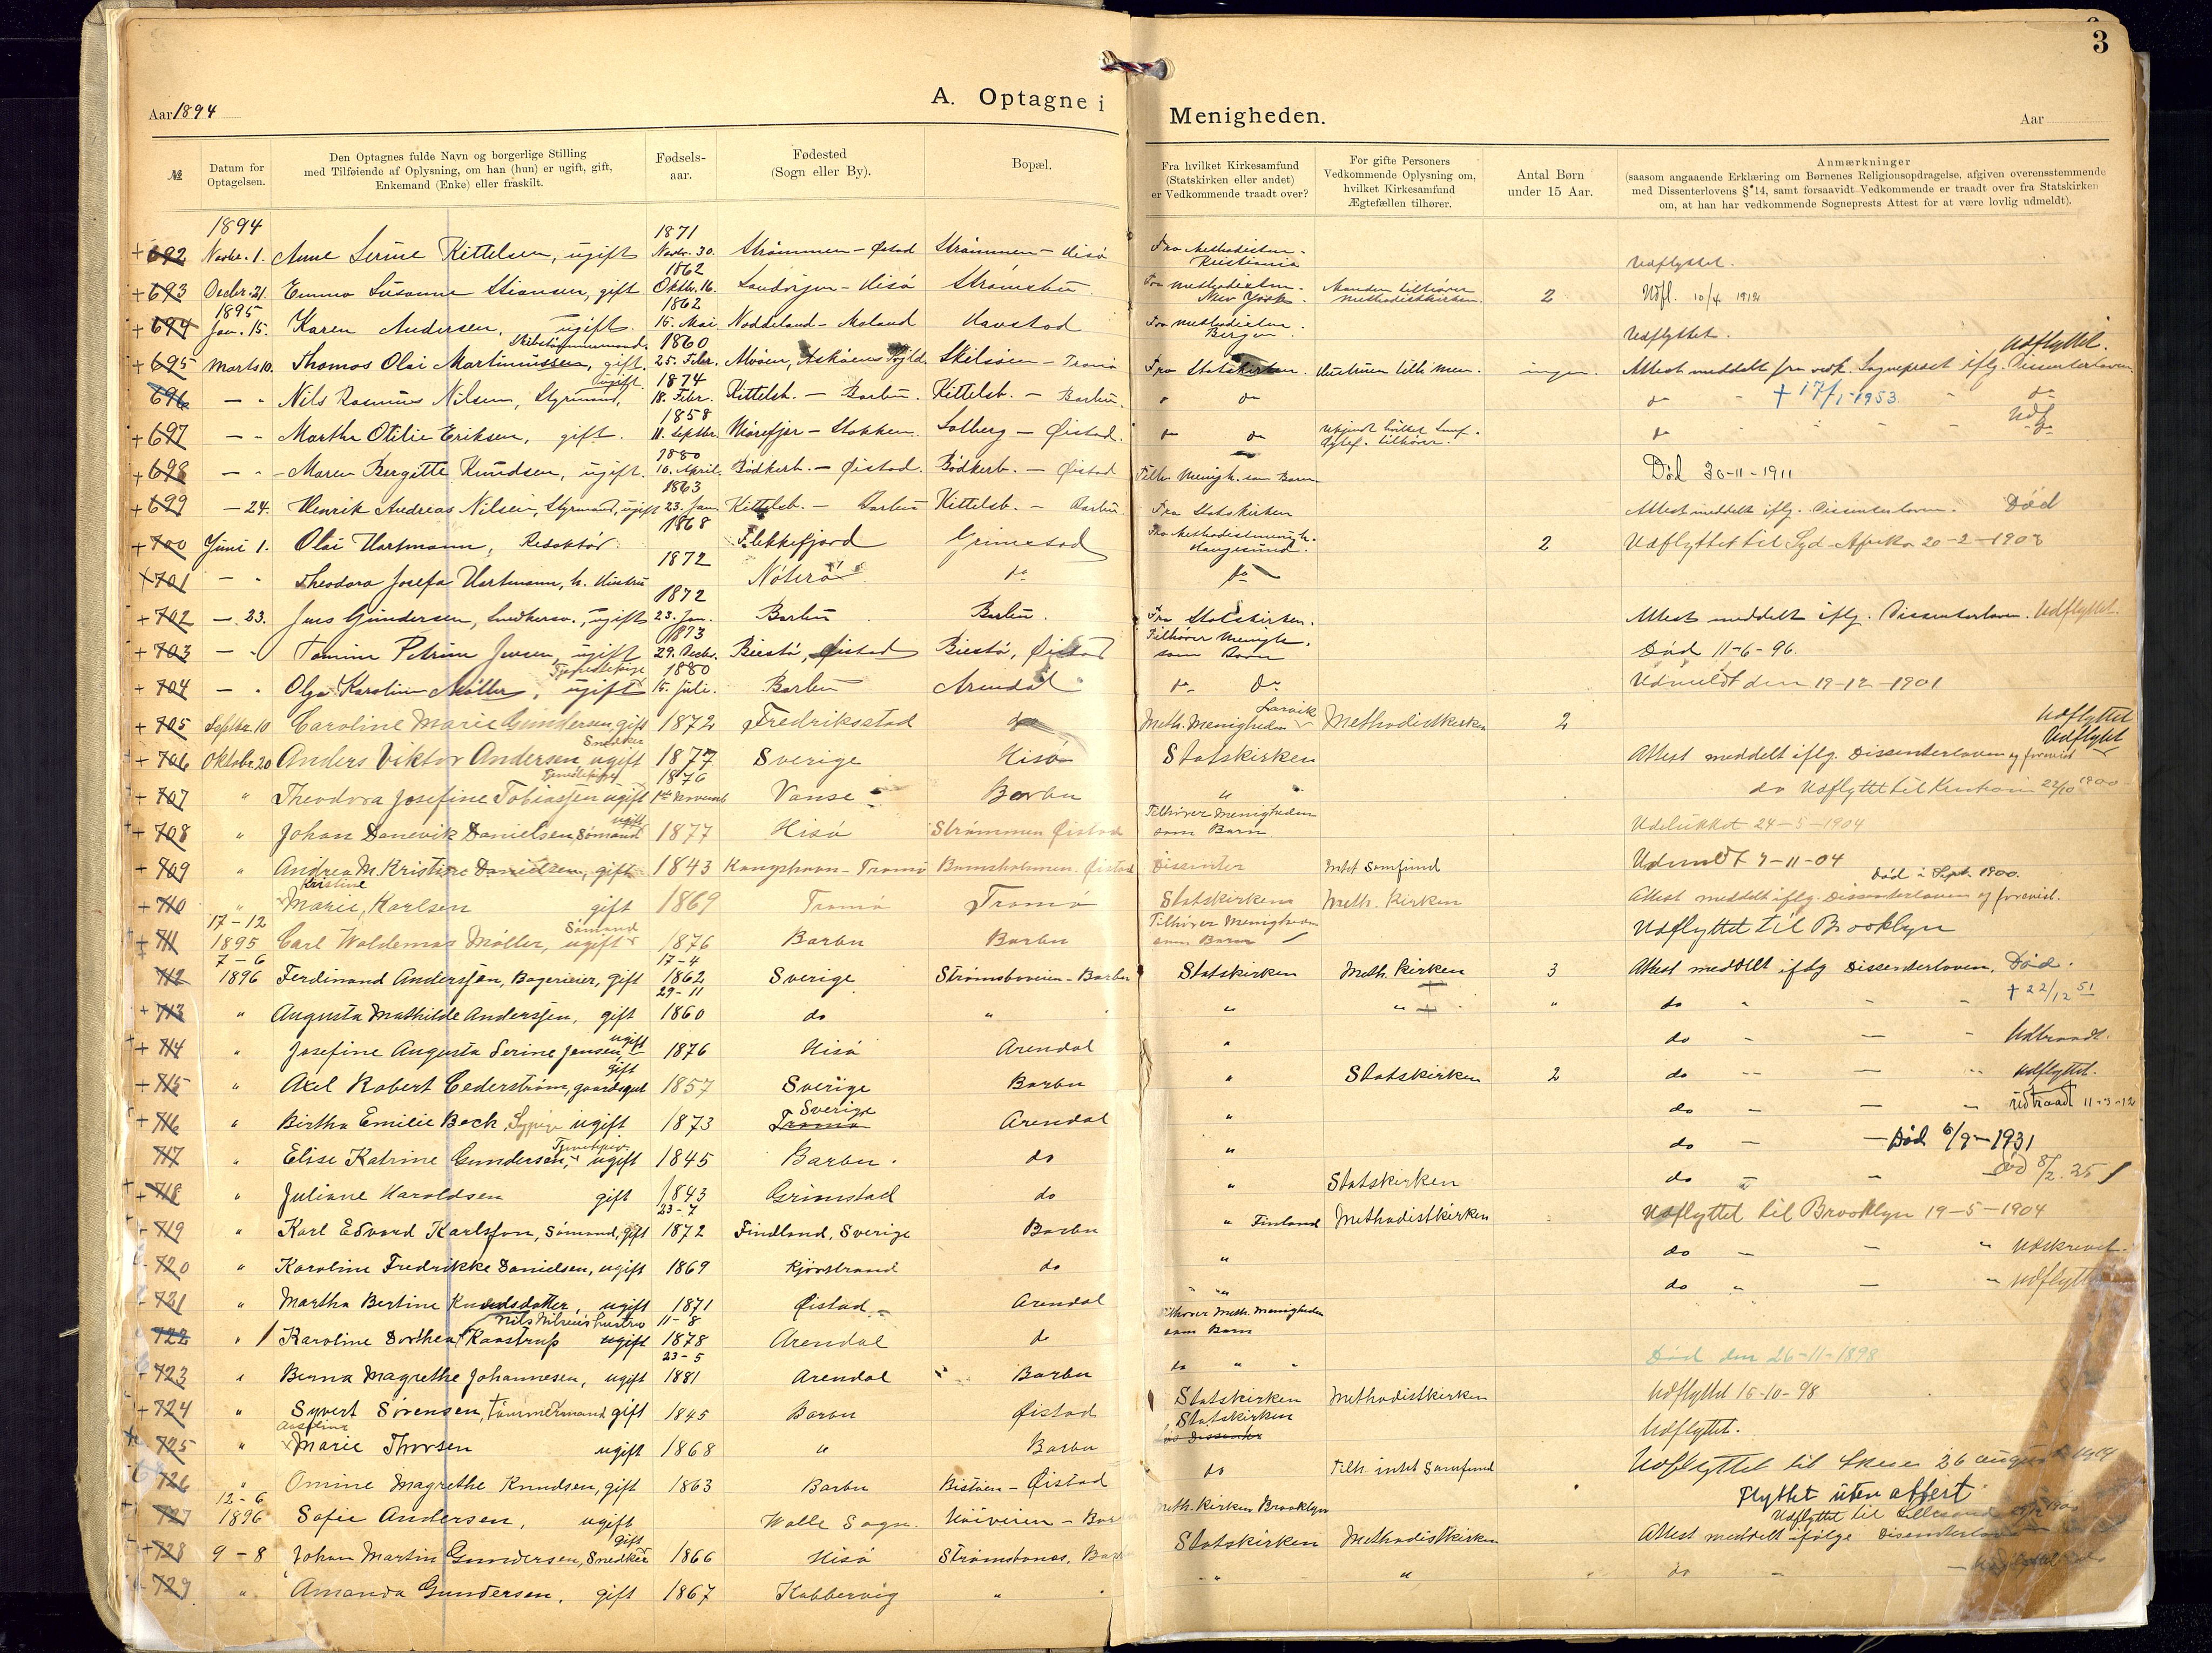 3
Aar 1894
A. Optagne i Menigheden.
Aar
№
Datum for Optagelsen.
Den Optagnes fulde Navn og borgerlige Stilling
med Tilføiende af Oplysning, om han (hun) er ugift, gift,
Enkemand (Enke) eller fraskilt.
Fødsels-aar.
Fødested
(Sogn eller By).
Bopæl.
Fra hvilket Kirkesamfund
(Statskirken eller andet)
er Vedkommende traadt over?
For gifte Personers
Vedkommende Oplysning om,
hvilket Kirkesamfund
Ægtefællen tilhører.
Antal Børn
under 15 Aar.
Anmærkninger
(saasom angaaende Erklæring om Børnenes Religionsopdragelse, afgiven overensstemmende
med Dissenterlovens § 14, samt forsaavidt Vedkommende er traadt over fra Statskirken
om, at han har vedkommende Sogneprests Attest for at være lovlig udmeldt).
1894 1871
+ 692 Novbr. 1. Anne Serine Kittelsen, ugift Novbr. 30. Strömmen - Østad Strömmen - Hisö Fra Methodistm. Kristiania Udflyttet.
1862
+ 693 Decbr. 21. Emma Susanne Stiansen, gift Oktb. 16. Sandvigen - Hisö Strömsbu Fra Methodistm. New York. Manden tilhører Methodistkirken. 2 Udfl. 10/4 1912
1895 1862
+ 694 Jan. 15. Karen Andersen, ugift. 15. Mai Noddeland - Moland Havstad Fra Methodistm. Bergen. Udflyttet.
1860 Udflyttet.
+ 695 Marts 10. Thomas Olai Martinussen, gift. 25. Febr. Skilsöen - Tromö Fra Statskirken. Hustruen tilh. Men. ingen. Attest meddelt fra vedk. Sogneprest iflg. Dissenterloven.
ugift 1874
696 — " Nils Rasmus Nilsen, Styrmand, 18. Febr. Kittelsb. - Barbu. Kittelsb. - Barbu. " do do + 17/1-1953 do
1858 Udf.
+ 697 — " Marthe Otilie Eriksen, gift. 11. Septbr. - Stokken. Solberg - Øistad. do do do
1880
+ 698 — " Maren Bergitte Knudsen, ugift. 10. April. Bödkerb. - Øistad. Bödkerb. - Øistad Tilh. Menigh. som Barn Död 30-11-1911
1863
+ 699 — 24. Henrik Andreas Nilsen, Styrmand, ugift 23. Jan. Kittelsb. - Barbu Kittelsb. - Barbu. Fra Statskirken Attest meddelt iflg. Dissenterloven. Död
1868
+ 700 Juni 1. Olai Hartmann, Redaktör Flekkefjord Grimstad Fra Methodistmenigh. Haugesund. 2 Udflyttet til Syd-Afrika 20-2-1903
1872
701 — " Theodora Josefa Hartmann, h. Hustru Nöterö do do
1872
+ 702 — 23. Jens Gundersen, ugift 23. Jan. Barbu Barbu. Fra Statskirken. Attest meddelt iflg. Dissenterloven. Udflyttet.
1873
+ 703 — " Petrine Jensen, ugift 29. Decbr. Biestö, Øistad Biestö, Øistad Tilhører Menigh. som Barn Död 11-6-96.
Tjenestepige 1880
+ 704 — " Olga Karoline Møller, ugift 15. Juli. Barbu Arendal do do Udmeldt den 19-12-1901
+ 705 Septbr. 10 Caroline Marie Gundersen, gift 1872 Fredriksstad do Meth. Menigheden Larvik Methodistkirken 2 Udflyttet
Snedker Udflyttet
+ 706 Oktobr. 20 Anders Viktor Andersen, ugift 1877 Sverige Hisö Statskirken Attest meddelt iflg. Dissenterloven og forevist
1876
+ 707 " Theodora Josefine Tobiassen ugift Vanse Barbu " do Udflyttet til 22/10 1900
ugift
+ 708 " Johan Danevik Danielsen, Sømand 1877 Hisö Strømmen Øistad Tilhører Menigheden som Barn Udelukket 24-5-1904
+ 709 " Andrea M. Kristine Danielsen, gift 1843 Kongshavn - Tromö Bomsholmen - Øistad Dissenter Intet Samfund Udmeldt 7-11-04
Kristine Död i Sept. 1900.
+ 710 " Marie, Karlsen gift 1869 Tromö Tromö Statskirken Meth. Kirken Attest meddelt iflg. Dissenterloven og forevist.
17-12 Sömand
+ 711 1895 Carl Waldemar Møller, ugift 1876 Barbu Barbu Tilhører Menigheden som Barn Udflyttet til Brooklyn
7-6 17-4
712 1896 Ferdinand Anderssen, Bagerieier, gift 1862 Sverige Strømsboveien - Barbu Statskirken Meth. Kirken 3 Attest meddelt ifølg Dissenterloven. Död.
29-11
+ 713 " Augusta Mathilde Anderssen, gift 1860 do " " " " do + 22/12 51
ugift
+ 714 " Josefine Augusta Serine Jensen 1876 Hisö Arendal " do Udtraadt.
gift
+ 715 " Axel Robert Cederström, 1857 Sverige Barbu " Statskirken 2 do Udflyttet.
Sverige
+ 716 " Birtha Emilie Beck, Sypige ugift 1873 Tromö Arendal " do udtraadt 11-3-12
717 " Elise Katrine Gundersen, ugift 1845 Barbu. do " do Död 6/9-1931
+ 718 " Juliane Haroldsen gift 1843 Grimstad do " Statskirken do Död 8/2. 25
23-7
719 " Karl Edvard Karlsson, Sömand, gift 1872 Findland, Sverige Barbu " Finland Methodistkirken Udflyttet til Brooklyn 19-5-1904
720 " Karoline Fredrikke Danielsen, ugift 1869 Kjörstrand do " do Udskrevet.
721 " Martha Bertine Knudsdatter, ugift 1871 Øistad Arendal " do Udflyttet
Nils Nilsens hustru 11-8
722 " Karoline Dorthea Kaastrup ugift 1878 Arendal do Tilhører Meth. Menigheden som Barn
23-5
723 " Berna Magrethe Johannesen, ugift 1881 Arendal Barbu do " " Död den 26-11-1898
724 " Syvert Sörensen, tömmermand gift 1845 Barbu Øistad Statskirken Methodistkirken Udflyttet 15-10-98
725 " Marie Thorsen ugift 1868 " Barbu Statskirken Udflyttet.
726 " Omine Magrethe Knudsen, gift 1863 Barbu Bistöen - Øistad do Tilh. intet Samfund Udflyttet til Skien 26 august
12-6 Flyttet uten attest
727 1896 Sofie Andersen, ugift Halle Sogn. Höiveien - Meth. Kirken Brooklyn Udflyttet til Lillesand
gift
728 9-8 Johan Martin Gundersen, Snedker 1866 Hisö Strömsbonæs, Statskirken Methodistkirken Attest meddelt ifølge
729 " Amanda Gundersen, gift 1867 Kobbervig " " " do